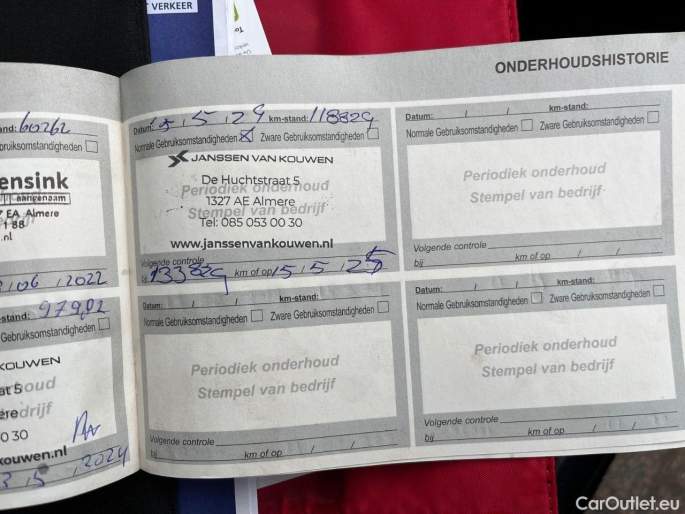 T VERKEER
ONDERHOUDSHISTORIE
and: 60262
bruiksomstandigheden
ensink
aangenaam
7 EA Almere
1 88
.nl
/06/2022
-stand: 97902
Gebruiksomstandigheden
KOUWEN
at 5
ere
0 30
kouwen.nl
5 / 2024
Datum: 15/5/24 km-stand: 118829
Normale Gebruiksomstandigheden Zware Gebruiksomstandigheden
JANSSEN VAN KOUWEN
De Huchtstraat 5
Periodiek onderhoud
1327 AE Almere
Stempel van bedrijf
Tel: 085 053 00 30
www.janssenvankouwen.nl
Volgende controle
bij 133829 km of op 15/5/25
Datum: / / km-stand:
Normale Gebruiksomstandigheden Zware Gebruiksomstandigheden
Periodiek onderhoud
Stempel van bedrijf
Volgende controle
bij km of op / /
Datum: / / km-stand:
Normale Gebruiksomstandigheden Zware Gebruiksomstandigheden
Periodiek onderhoud
Stempel van bedrijf
Volgende controle
bij km of op / /
Datum: / / km-stand:
Normale Gebruiksomstandigheden Zware Gebruiksomstandigheden
Periodiek onderhoud
Stempel van bedrijf
Volgende controle
bij km of op / /
CarOutlet.eu